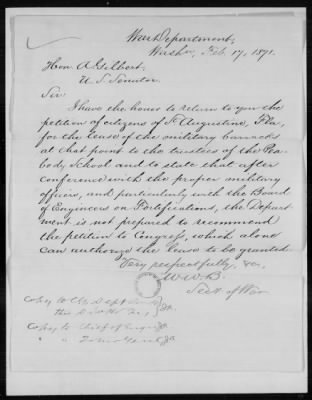 War Department,
Washn, Feb. 17, 1871.
Hon. A Gilbert,
U. S. Senator.
Sir
I have the honor to return to you the
petition of citizens of St Augustine, Fla,
for the lease of the military barracks
at that point to the trustees of the Pea-
body School and to state that after
conference with the proper military
officers, and particularly with the Board
of Engineers on Fortifications, the Depart
ment is not prepared to recommend
the petition to Congress, which alone
can authorize the lease to be granted.
Very respectfully, &c,
W. W. B
Secy of War
Copy to
Copy to Chief of Engrs
" "